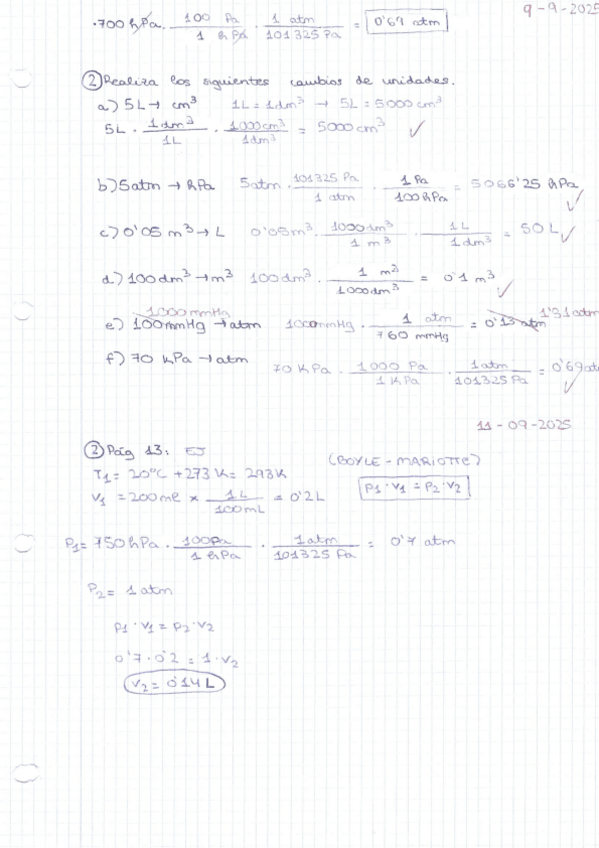 9-9-2025
·700 hPa · 100 Pa / 1 hPa · 1 atm / 101325 Pa = 0'69 atm
② Realiza los siguientes cambios de unidades.
a) 5L → cm³ 1L = 1dm³ → 5L = 5000 cm³
5L · 1dm³ / 1L · 1000cm³ / 1dm³ = 5000cm³ ✓
b) 5atm → hPa 5atm · 101325 Pa / 1 atm · 1 Pa / 100 hPa = 5066'25 hPa ✓
c) 0'05 m³ → L 0'05m³ · 1000dm³ / 1 m³ · 1L / 1dm³ = 50L ✓
d) 100dm³ → m³ 100dm³ · 1 m³ / 1000dm³ = 0'1 m³ ✓
1000mmHg
e) 100mmHg → atm 1000mmHg · 1 atm / 760 mmHg = 0'13 atm 1'31 atm
f) 70 KPa → atm 70 KPa · 1000 Pa / 1 KPa · 1atm / 101325 Pa = 0'69at ✓
11-09-2025
② Pág 13: EJ
T₁ = 20°C + 273 K = 293K (BOYLE - MARIOTTE)
V₁ = 200ml × 1L / 100mL = 0'2L P₁·V₁ = P₂·V₂
P₁ = 750hPa · 100Pa / 1 hPa · 1atm / 101325 Pa = 0'7 atm
P₂ = 1 atm
P₁·V₁ = P₂·V₂
0'7·0'2 = 1·V₂
V₂ = 0'14L